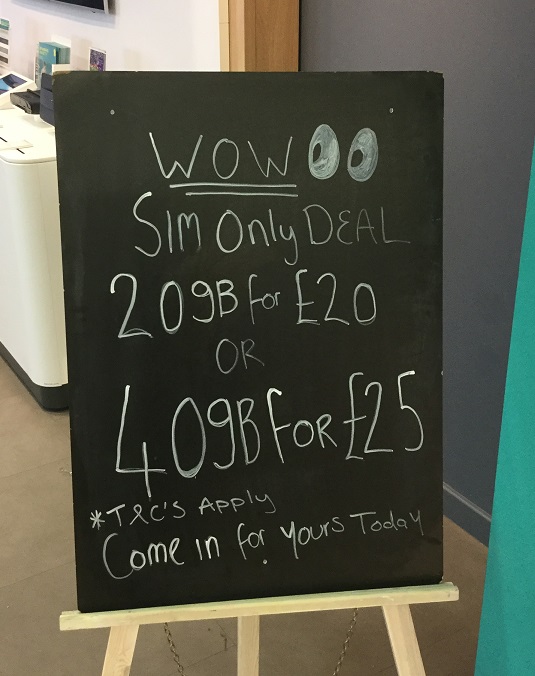 WOW
SIM Only DEAL
20gB for £20
OR
40gB FOR £25
*T&C'S Apply
Come in for yours Today